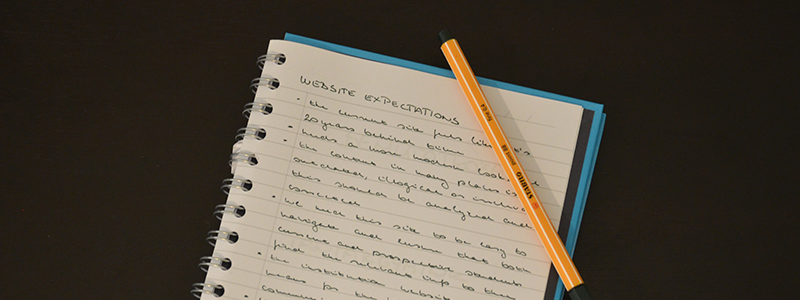 WEBSITE EXPECTATIONS
• the current site feels like it's
20 years behind time
• needs a more modern look
• the content in many places is
outdated, illogical or
this should be analyzed and
corrected
• we need this site to be easy to
navigate and ensure that both
current and prospective students
find the relevant info to them
• the institution website
means for the
STABILO
point 88
fine 0,4